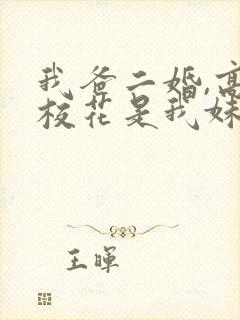 我爸二婚,高
校花是我妹
王暉